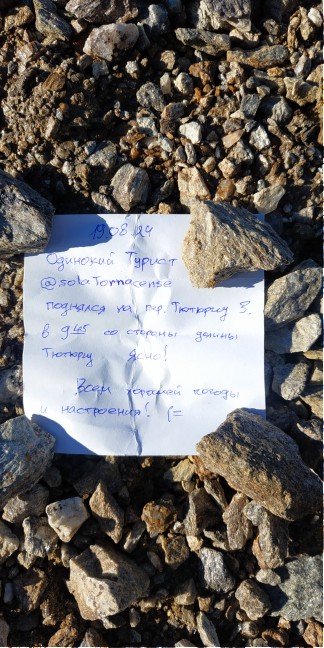 19.08.24
Одинокий Турист
@soloTornacense
поднялся на пер. Тютюргу З.
в 9 45 со стороны долины
Тютюргу. Ясно!
Всем хорошей погоды
и настроения! (=